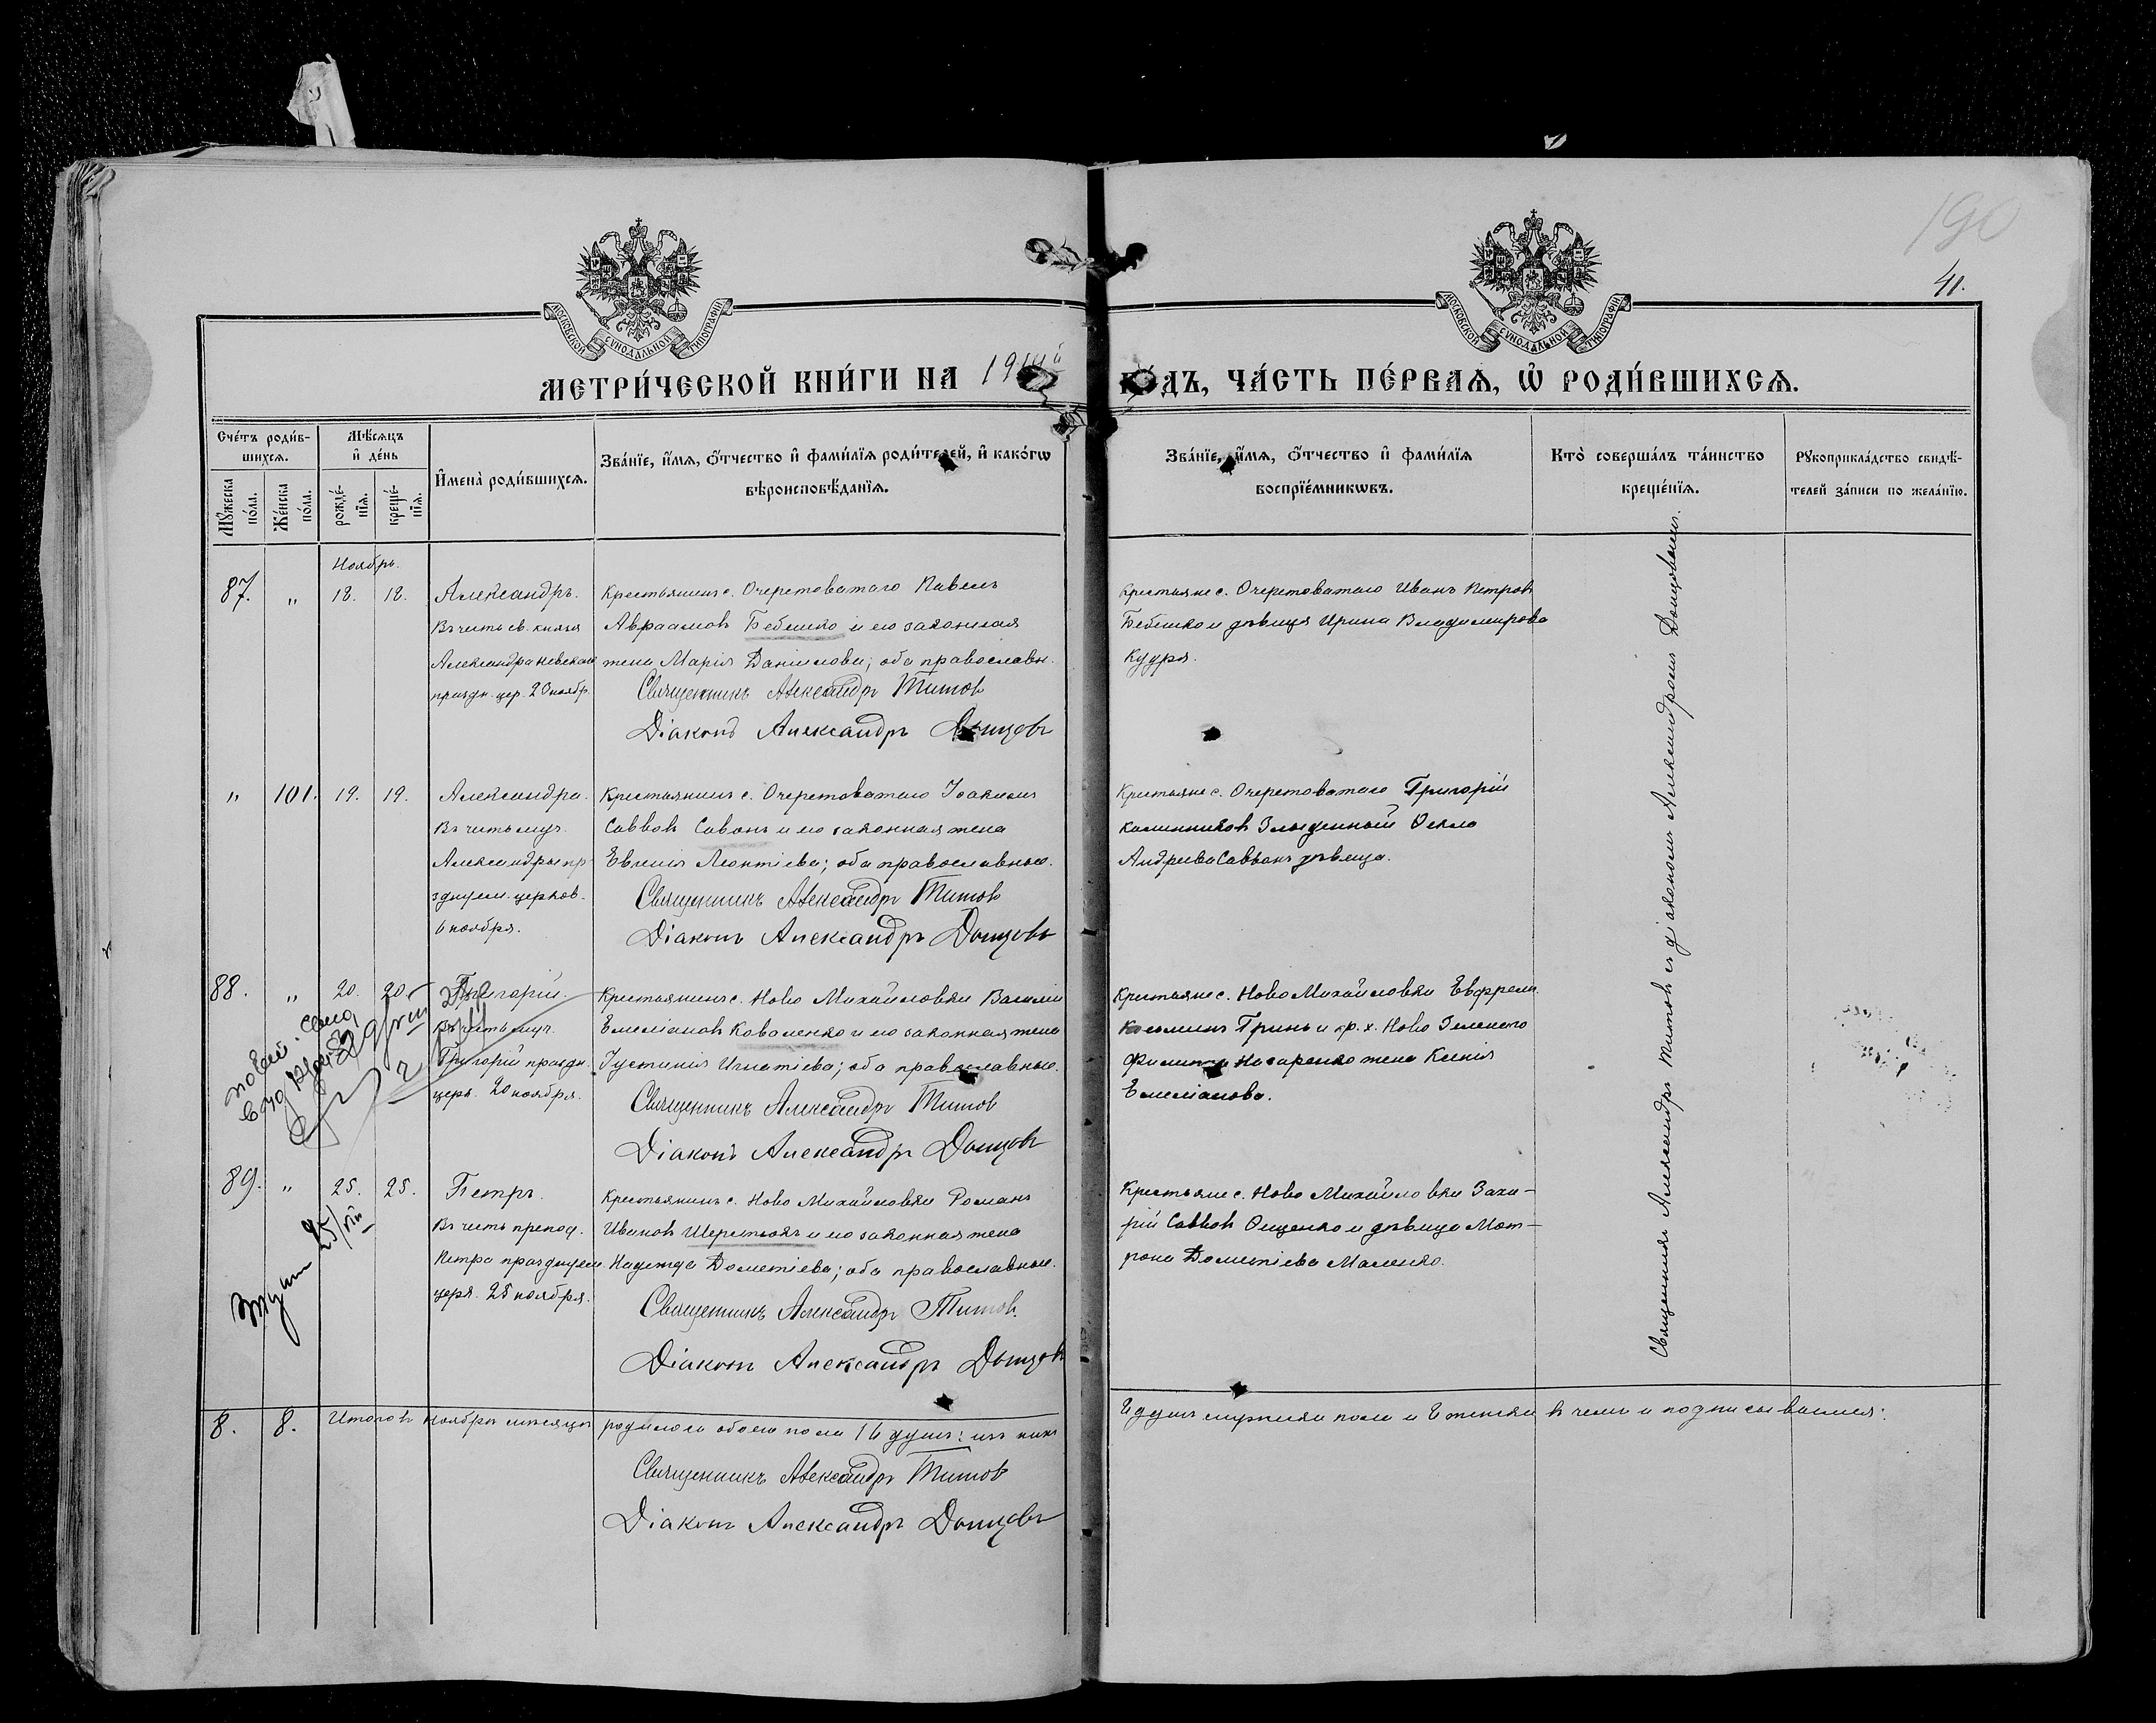 190
41.
МОСКОВСКОЙ СѴНОДАЛЬНОЙ ТИПОГРАФІИ
МОСКОВСКОЙ СѴНОДАЛЬНОЙ ТИПОГРАФІИ
МЕТРИ́ЧЕСКОЙ КНИ́ГИ НА
ГО́ДЪ, ЧА́СТЬ ПЕ́РВАѦ, Ѡ҆ РОДИ́ВШИХСѦ.
Сче́тъ роди́в-
шихсѧ.
Мꙋ́жеска по́ла.
Же́нска по́ла.
Мѣ́сѧцъ
и҆ де́нь
рожде́-нїѧ.
креще́-нїѧ.
И҆мена̀ роди́вшихсѧ.
Зва́нїе, и҆́мѧ, ѻ҆́тчество и҆ фами́лїѧ роди́телей, и҆ како́гѡ
вѣроисповѣ́данїѧ.
Зва́нїе, и҆́мѧ, ѻ҆́тчество и҆ фами́лїѧ
воспрїе́мникѡвъ.
Кто̀ соверша́лъ та́инство
креще́нїѧ.
Рꙋкоприкла́дство свидѣ́-
телей за́писи по жела́нїю.
Ноябрь.
87. " 18. 18. Александръ.
Въ честь св. князя
Александра Невскаго
праздн. цер. 23 ноябр.
Крестьянинъ с. Очеретоватаго Павелъ
Авраамовъ Бебешко и его законная
жена Марія Даніилова; оба православн.
Священникъ Александръ Титовъ
Діаконъ Александръ Донцовъ
Крестьяне с. Очеретоватаго Иванъ Петровъ
Бебешко и дѣвица Ирина Владимирова
Кудря.
" 101. 19. 19. Александра.
Въ честь муч.
Александры пр
здуем. церков.
6 ноября.
Крестьянинъ с. Очеретоватаго Іоакимъ
Саввовъ Савонъ и его законная жена
Евгенія Леонтіева; оба православные.
Священникъ Александръ Титовъ
Діаконъ Александръ Донцовъ
Крестьяне с. Очеретоватаго Григорій
Андреева Саввонъ дѣвица.
88. " 20. 20. Григорій.
Въ честь муч.
Григорій праздн.
церк. 20 ноября.
Крестьянинъ с. Ново Михайловки Василій
Емеліановъ Коваленко и его законная жена
Іустинія Игнатіева; оба православные.
Священникъ Александръ Титовъ
Діаконъ Александръ Донцовъ
Крестьяне с. Ново Михайловки Евфрем.
Козьминъ Гринь и кр. х. Ново Зеленого
Филиппа Назаренко жена Ксенія
Емеліанова.
89. " 25. 25. Петръ.
Въ честь препод.
Петра празднуем
церк. 25 ноября.
Крестьянинъ с. Ново Михайловки Романъ
Ивановъ Шерстюкъ и его законная жена
Надежда Дометіева; оба православные.
Священникъ Александръ Титовъ.
Діаконъ Александръ Донцовъ
Крестьяне с. Ново Михайловки Заха-
рій Саввовъ Ощенко и дѣвица Мат-
рона Дометіева Маленко.
Священникъ Александръ Титовъ съ діакономъ Александромъ Донцовымъ.
8. 8. Итого въ ноябрѣ мѣсяцѣ родилося обоего пола 16 душъ: изъ нихъ
8 душъ мужеска пола и 8 женска въ чемъ и подписываемся:
Священникъ Александръ Титовъ
Діаконъ Александръ Донцовъ